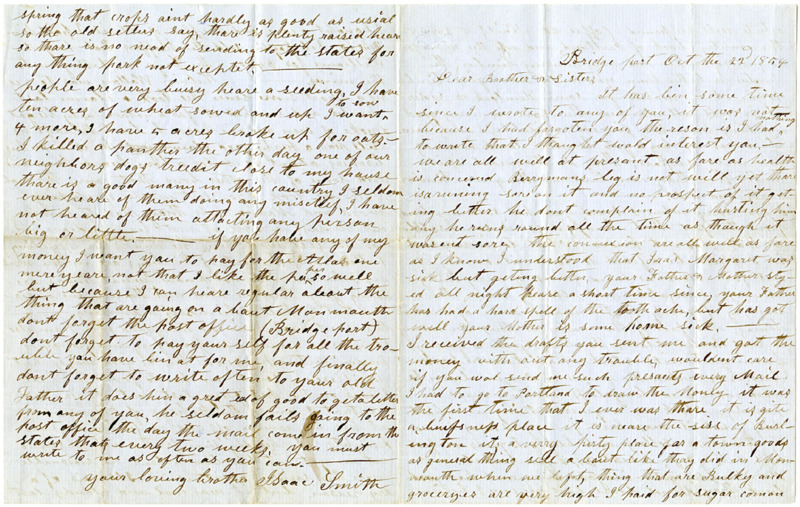 Bridge port Oct the 22d 1854
Dear brother & Sister
It has bin some time
since I wrote to any of you, it was not
because I had forgoten you the reson is I had nothing
to write that I thaught wold interest you,—
we are all well at presant as fare as health
is conserned Berrymans leg is not well yet there
is a runing sore on it and no prospect of it get
ing better he dont complain of it hurting him
any he runs round all the time as though it
was ent sore. the connexion are all well as fare
as I know I understood that Margaret was
sick but geting better, your Father & Mother stay
ed all night heare a short time since, your Father
has had a hard spell of the tooth ache, but has got
well your Mother is some home sick.
I received the drafts you sent me and got the
money with out any trouble, wouldent care
if you wod send me such presants every Mail
I had to go to Portland to draw the Money it was
the first time that I ever was thare it is qite
a buisness place it is neare the sise of Burl-
ington its a verry pirty place for a town goods
as general thing sell a baut like they did in Mon
mauth when we left, thing that are Bulky and
groceryes are very high I paid for sugar coman
spring that crops aint hardly as good as usial
so the old setlers say, there is plenty raised hear
so there is no nead of sending to the states for
any thing pork not exceptet.
people are very buisy heare a seeding, I have
ten acres of wheat sowed and up I want to sow
4 more, I have 5 acres broke up for oats—
I killed a panther the other day one of our
neighbors dogs treedit close to my hause
there is a good many in this cauntry I seldom
ever heare of them doing any miscief, I have
not heared of them attacting any person
big or little. — if you have any of my
money I want you to pay for the Atlas one
more yeare not that I like the paper so well
but because I can heare regular abaut the
thing that are going on a baut Mon mauth
dont forget the post office (Bridge port)
dont forget to pay your self for all the tro-
uble you have bin at for me, and finally
dont forget to write often to your old
Father it does him a gred eal of good to get a letter
from any of you, he seldom fails going to the
post office the day the mail come in from the
states thats every two weeks. you must
write to me as often as you can.
your loving brother Isaac Smith